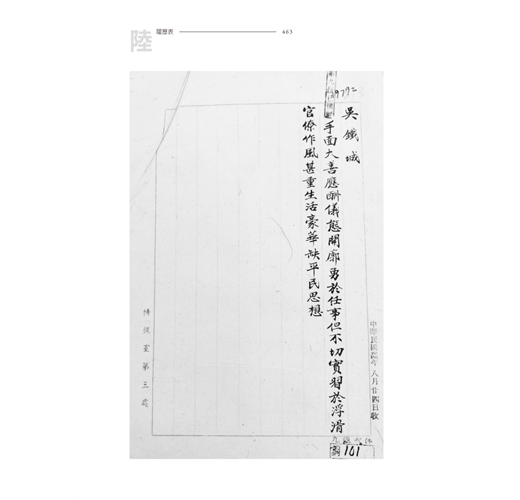 陸
履歷表
463
吳鐵城
手面大善應酬儀態開廓勇於任事但不切實習於浮滑
官僚作風甚重生活豪華缺平民思想
侍從室第三處
八月廿四日收
101